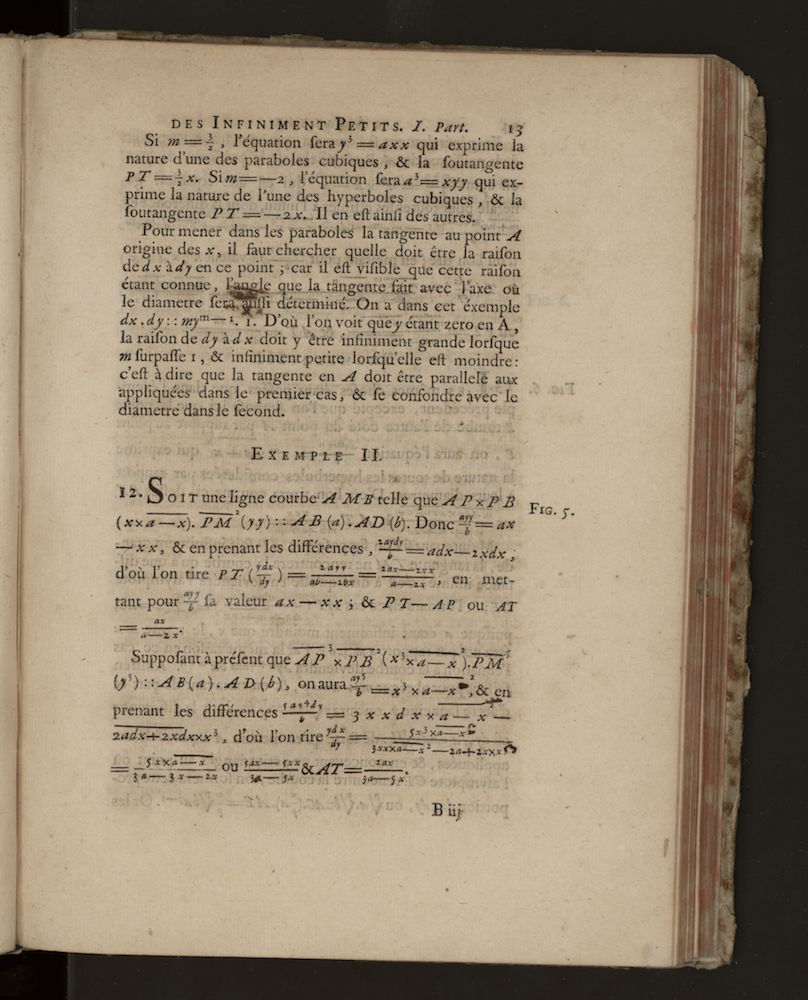 DES INFINIMENT PETITS. I. Part. 13
Si m = 3/2, l'équation ſera y³ = axx qui exprime la
nature d'une des paraboles cubiques, & la ſoutangente
PT = 3/2 x. Si m = — 2, l'équation ſera a³ = xyy qui ex-
prime la nature de l'une des hyperboles cubiques, & la
ſoutangente PT = — 2x. Il en eſt ainſi des autres.
Pour mener dans les paraboles la tangente au point A
origine des x, il faut chercher quelle doit être la raiſon
de dx à dy en ce point ; car il eſt viſible que cette raiſon
étant connue, l'angle que la tangente fait avec l'axe où
le diametre ſera auſſi déterminé. On a dans cet éxemple
dx . dy :: myᵐ⁻¹. 1. D'où l'on voit que y étant zero en A,
la raiſon de dy à dx doit y être infiniment grande lorſque
m ſurpaſſe 1, & infiniment petite lorſqu'elle eſt moindre :
c'eſt à dire que la tangente en A doit être parallele aux
appliquées dans le premier cas, & ſe confondre avec le
diametre dans le ſecond.
EXEMPLE II.
12. SOIT une ligne courbe AMB telle que AP × PB
(x×a—x). PM² (yy) :: AB (a). AD (b). Donc ayy/b = ax
— xx, & en prenant les différences, 2aydy/b = adx — 2xdx,
d'où l'on tire PT (ydx/dy) = 2ayy/ab—2bx = 2ax—2xx/a—2x, en met-
tant pour ayy/b ſa valeur ax — xx ; & PT — AP ou AT
= ax/a—2x.
Suppoſant à préſent que AP³ × PB² (x³×a—x²). PM⁵
(y⁵) :: AB (a). AD (b), on aura ay⁵/b = x³ × a—x², & en
prenant les différences 5ay⁴dy/b = 3xxdx × a — x² —
2adx+2xdx×x³, d'où l'on tire ydx/dy = 5x³×a—x²/3xx×a—x²—2a+2x×x³
= 5x×a—x/3a—3x—2x ou 5ax—5xx/3a—5x & AT = 2ax/3a—5x.
B iij
FIG. 5.